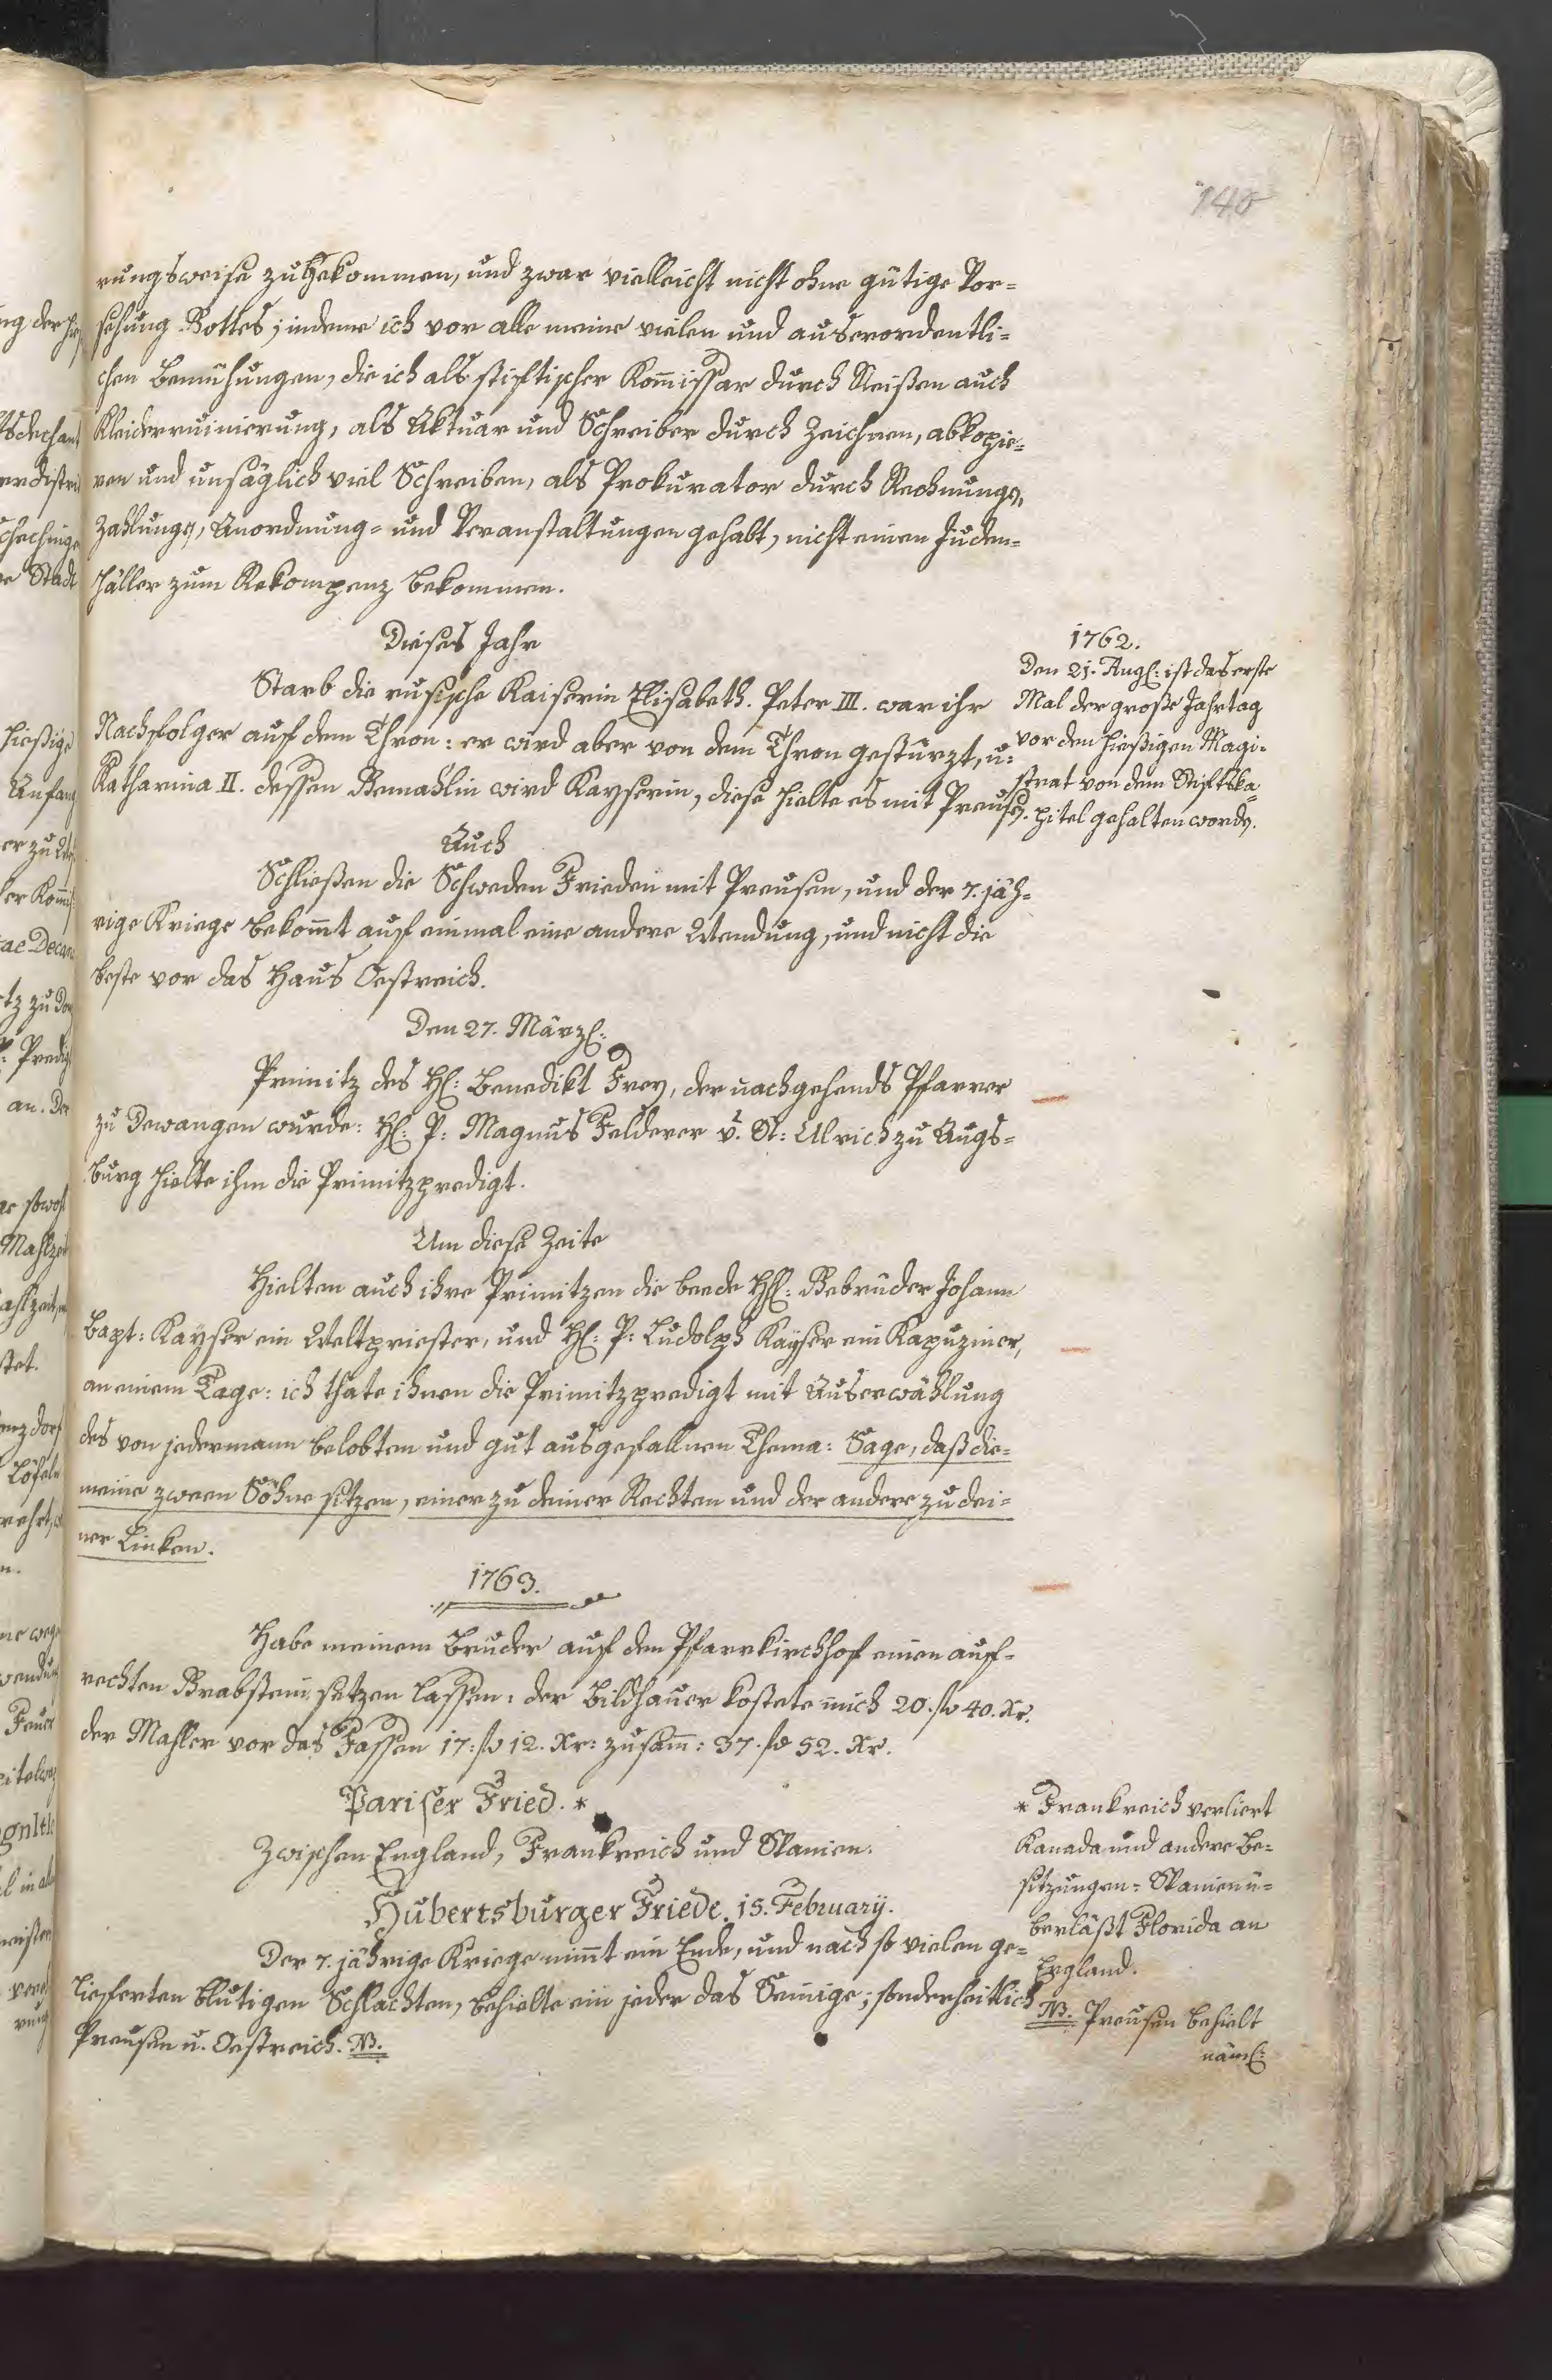 140
rungsweise zubekommen, und zwar vielleicht nicht ohne gütige Vor=
sehung Gottes; indeme ich vor alle meine vielen und auserordentli=
chen Bemühungen, die ich als stiftischer Kom̄issar durch Reißen auch
Kleiderruinierung, als Aktuar und Schreiber durch Zeichnen, abkopie=
ren und unsäglich viel Schreiben, als Prokurator durch Rechnungs,
Zahlungs, Anordnung= und Veranstaltungen gehabt, nicht einen Juden=
häller zum Rekompenz bekommen.
Dieses Jahr
Starb die rusische Kaiserin Elisabeth. Peter III. war ihr
Nachfolger auf dem Thron: er wird aber von dem Thron gestürzt, u:
Katharina II. dessen Gemahlin wird Kayserin, diese hielte es mit Preusen.
1762.
Den 21. Augl: ist das erste
Mal der große Jahrtag
vor den hießigen Magi=
strat von dem Stiftska=
pitel gehalten worden.
Auch
Schließen die Schweden Frieden mit Preusen, und der 7. jäh=
rige Kriege bekom̄t auf einmal eine andere Wendung, und nicht die
beste vor das Haus Oestreich.
Den 27. Märzl:
Primitz des Hl: Benedikt Frey, der nachgehends Pfarrer
zu Dewangen wurde: Hl: P: Magnus Felderer v. St: Ulrich zu Augs=
burg hielte ihm die Primitzpredigt.
Um diese Zeite
Hielten auch ihre Primitzen die beede HHl: Gebrüder Johann
Bapt: Kayser ein Weltpriester, und Hl: P: Ludolph Kayser ein Kapuziner,
an einem Tage: ich thate ihnen die Primitzpredigt mit Auserwählung
des von jedermann belobten und gut ausgefallnen Thema: Sage, daß die=
meine zween Söhne sitzen, einer zu deiner Rechten und der andere zu dei=
ner Linken.
1763.
Habe meinem Bruder auf den Pfarrkirchhof einen auf=
rechten Grabstein setzen lassen: der Bildhauer kostete mich 20. fl 40. Xr.
der Mahler vor das Fassen 17: fl 12. Xr: zusam̄: 37. fl 52. Xr.
Pariser Fried. *
Zwischen England, Frankreich und Spanien.
Hubertsburger Friede. 15. February.
Der 7. jährige Kriege nim̄t ein Ende, und nach so vielen ge=
lieferten blutigen Schlachten, behielte ein jeder das Seinige; sonderheitlich
Preusen u. Oestreich. NB.
* Frankreich verliert
Kanada und andere Be=
sitzungen= Spanien ü=
berläßt Florida an
England.
NB. Preusen behielt
näml: